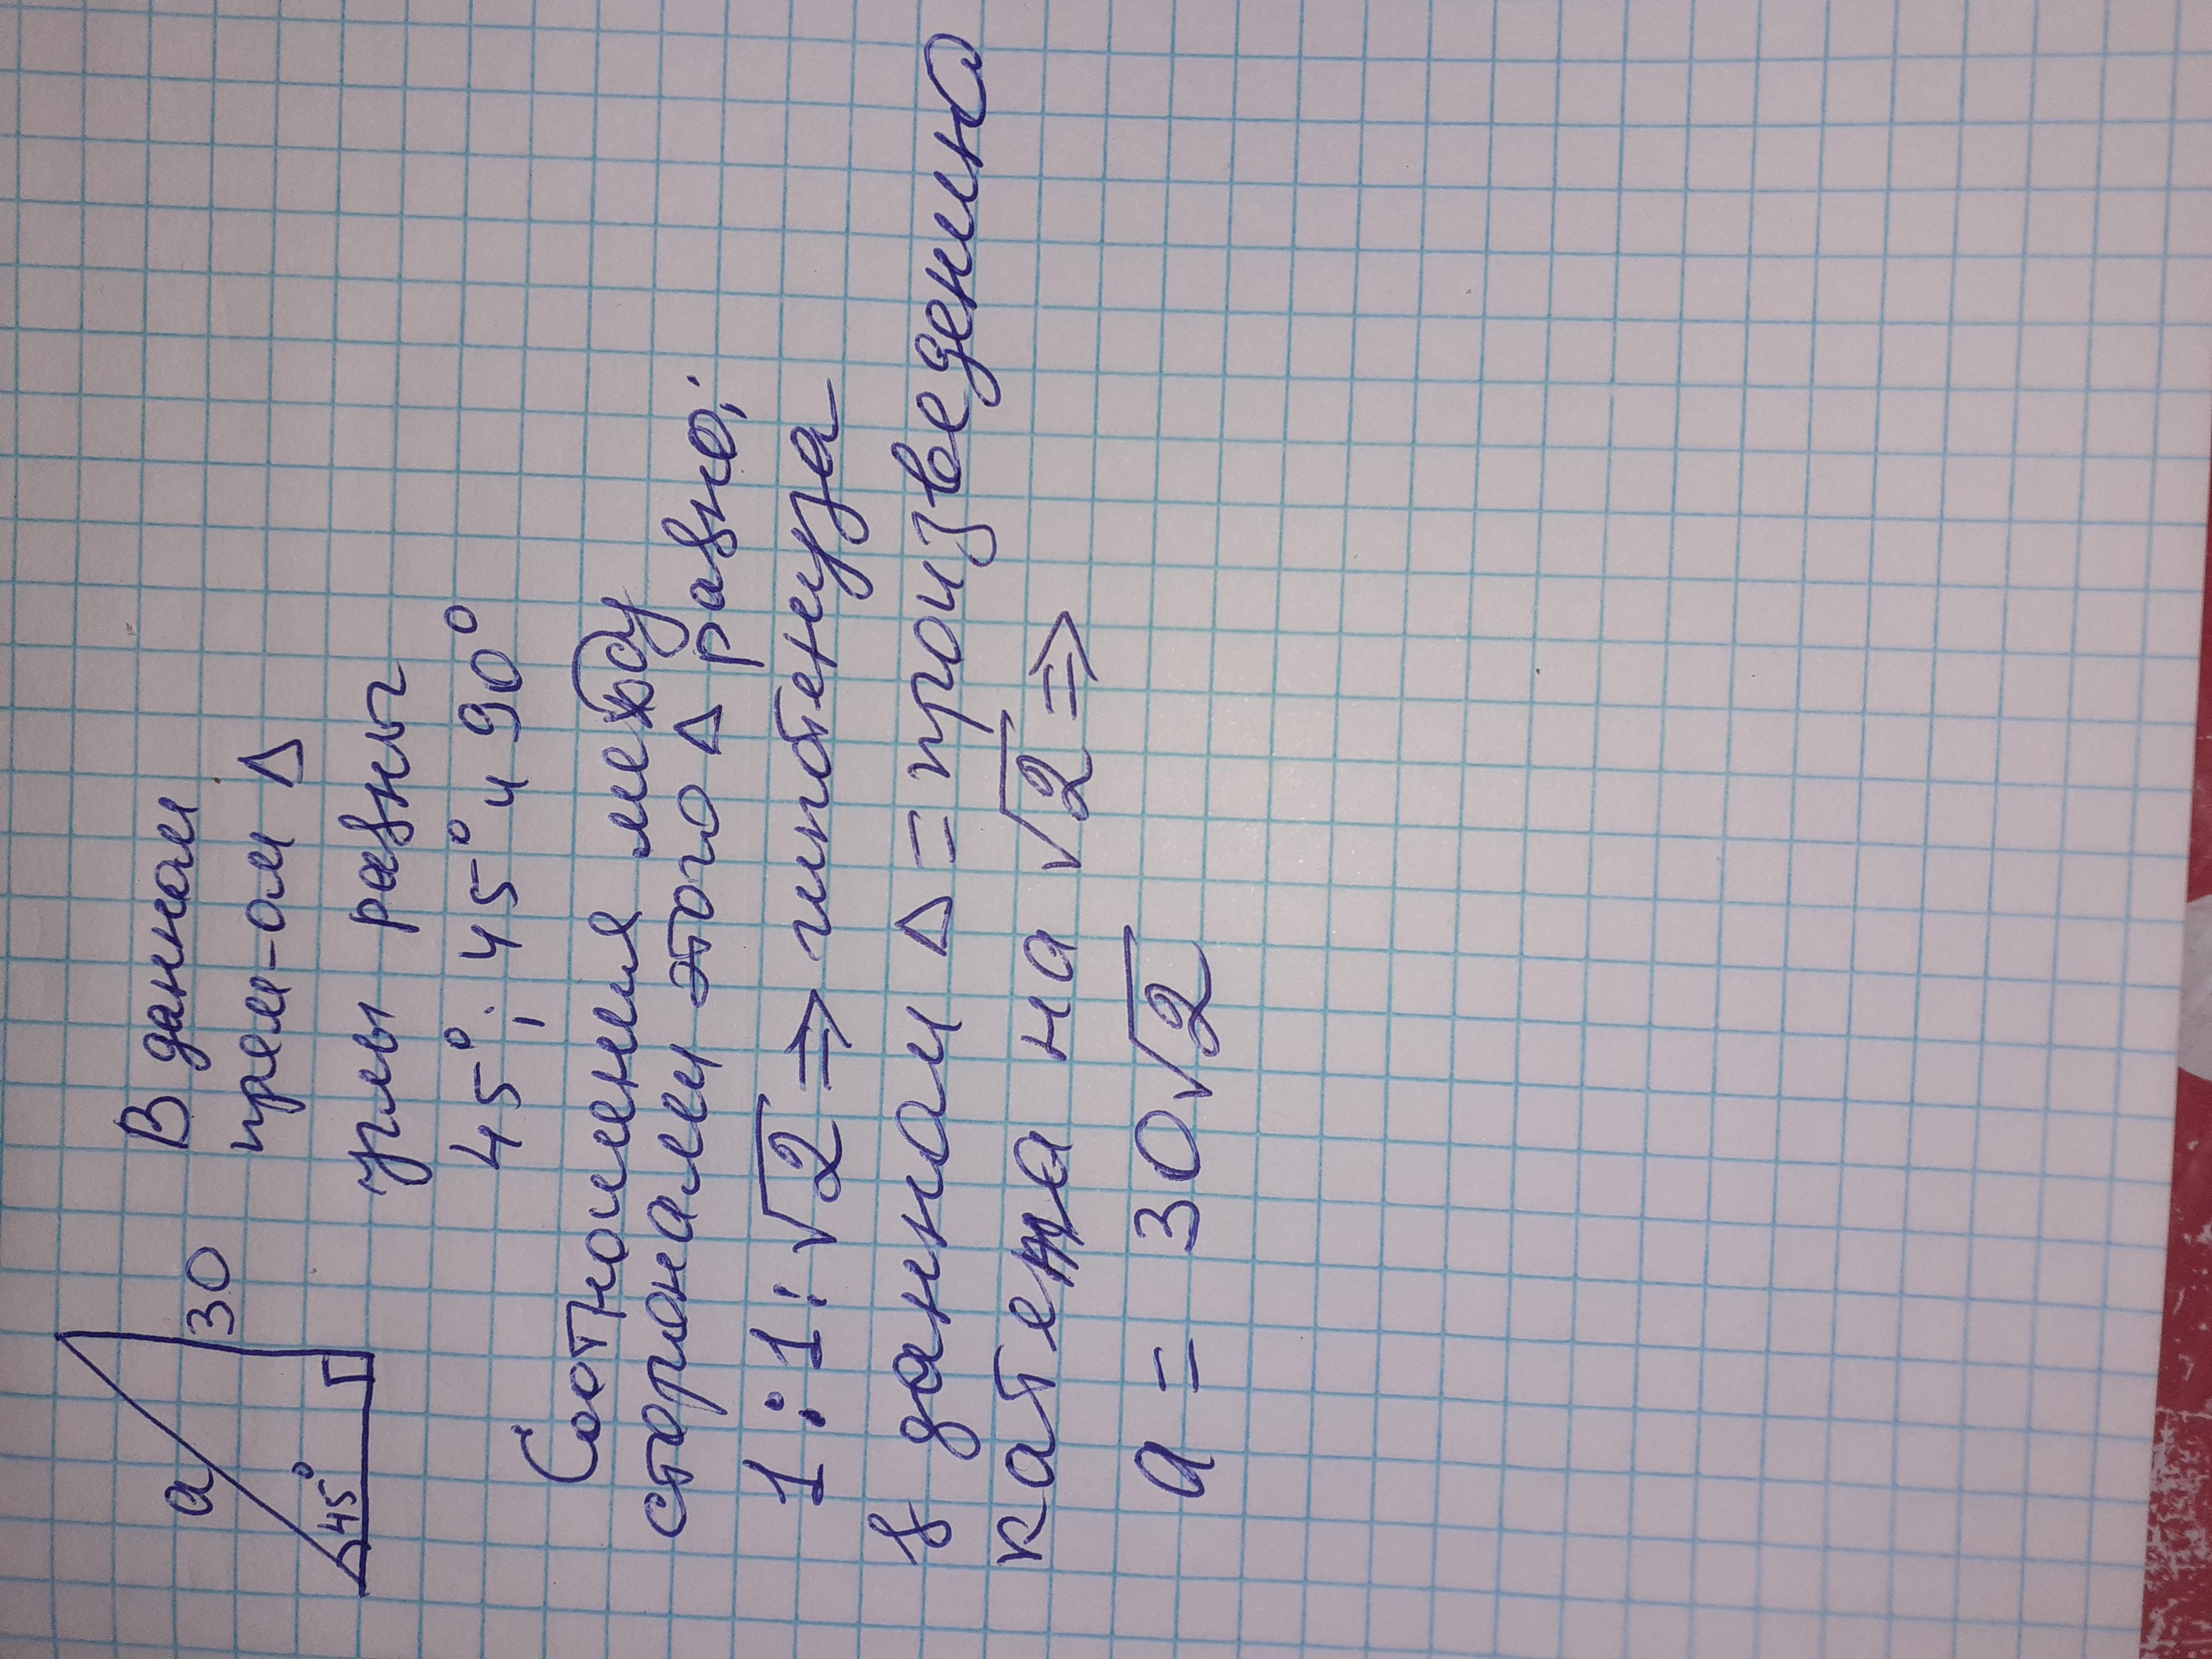 a
30
45°
В данном
прям-ом Δ
углы равны
45°; 45° и 90°
Соотношения между
сторонами этого Δ равно:
1:1:√2 => гипотенуза
в данном Δ = произведению
катета на √2 =>
a = 30√2